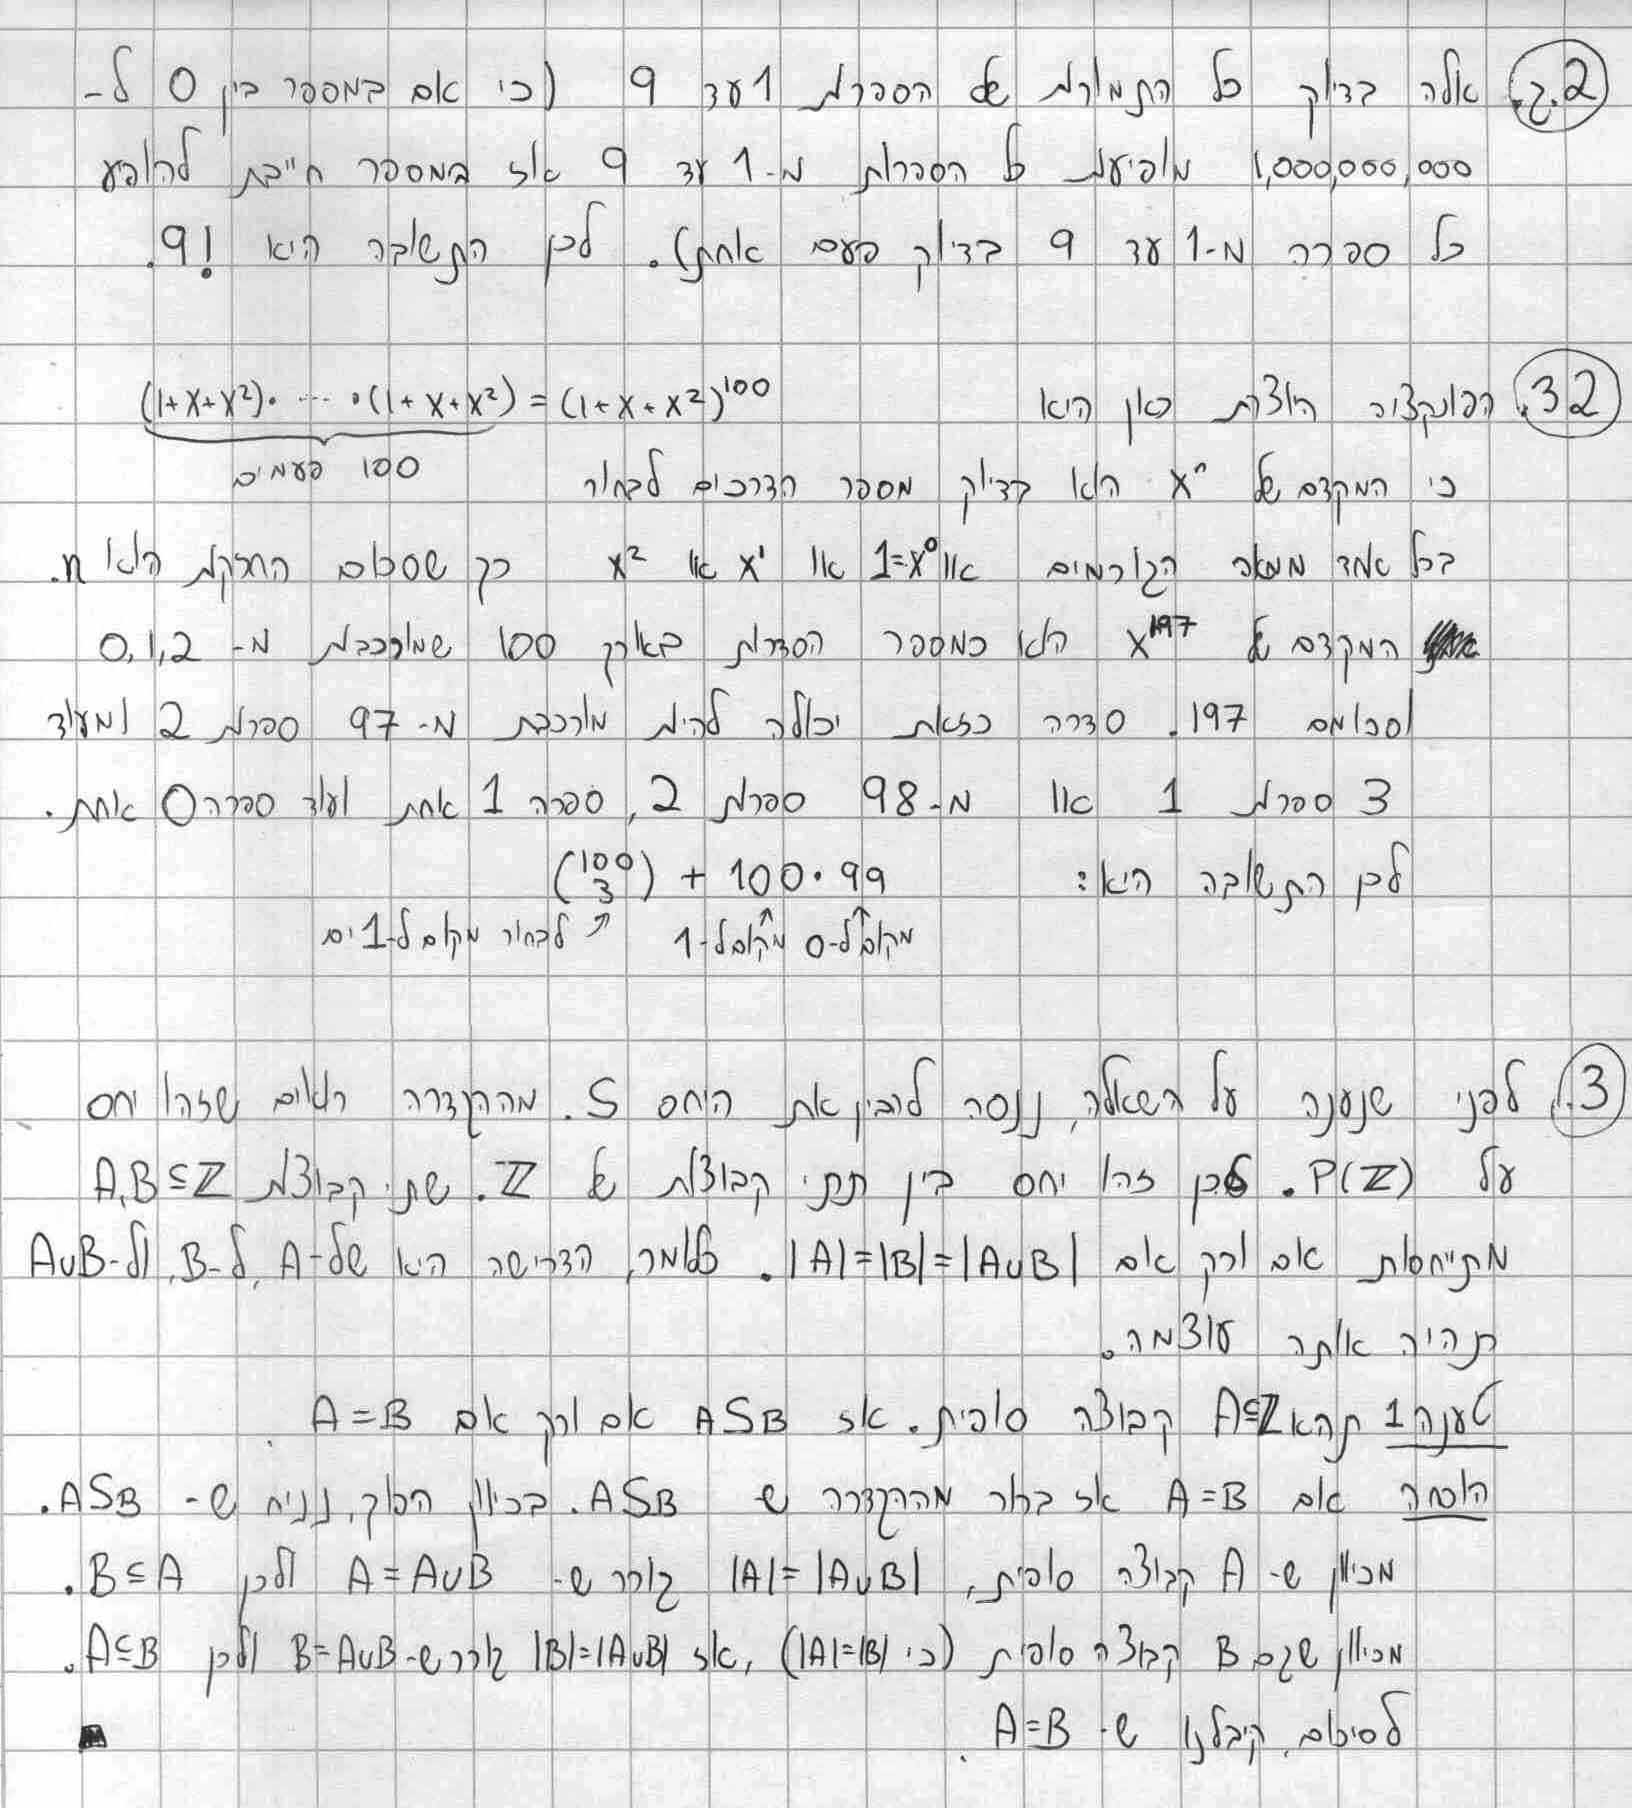 2.ג. אלה בדיוק כל התמורות של הספרות 1 עד 9 (כי אם במספר בין 0 ל-
1,000,000,000 מופיעות כל הספרות מ-1 עד 9 אז במספר חייבת להופיע
כל ספרה מ-1 עד 9 בדיוק פעם אחת). לכן התשובה היא 9!.
2.ד. הפונקציה היוצרת כאן היא (1+x+x²)· ··· ·(1+x+x²) = (1+x+x²)¹⁰⁰
100 פעמים
כי המקדם של xⁿ הוא בדיוק מספר הדרכים לבחור
בכל אחד ממאה הגורמים או 1=x⁰ או x¹ או x² כך שסכום החזקות הוא n.
המקדם של x¹⁹⁷ הוא כמספר הסדרות באורך 100 שמורכבות מ- 0,1,2
וסכומם 197. סדרה כזאת יכולה להיות מורכבת מ- 97 ספרות 2 ומעוד
3 ספרות 1 או מ- 98 ספרות 2, ספרה 1 אחת ועוד ספרה 0 אחת.
לכן התשובה היא: (100 3) + 100·99
לבחור מקום ל-1ים מקום ל-1 מקום ל-0
3. לפני שנענה על השאלה, ננסה להבין את היחס S. מההגדרה רואים שזהו יחס
על P(ℤ). לכן זהו יחס בין תתי קבוצות של ℤ. שתי קבוצות A,B⊆ℤ
מתייחסות אם ורק אם |A|=|B|=|A∪B|. כלומר, הדרישה היא של-A, ל-B, ול-A∪B
תהיה אותה עוצמה.
טענה 1 תהא A⊆ℤ קבוצה סופית. אז ASB אם ורק אם A=B.
הוכחה אם A=B אז ברור מההגדרה ש ASB. בכיוון הפוך, נניח ש- ASB.
מכיוון ש- A קבוצה סופית, |A|=|A∪B| גורר ש- A=A∪B ולכן B⊆A.
מכיוון שגם B קבוצה סופית (כי |A|=|B|), אז |B|=|A∪B| גורר ש- B=A∪B ולכן A⊆B.
לסיכום, קיבלנו ש- A=B.